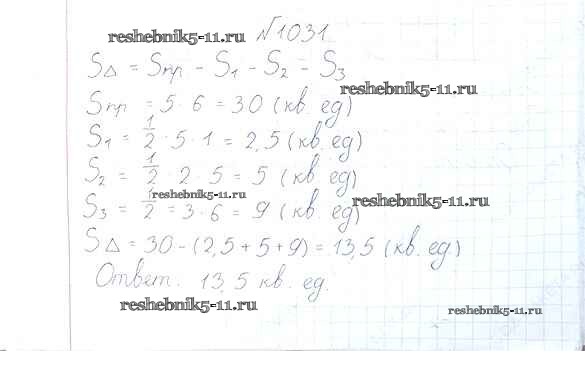 reshebnik5-11.ru №1031.
S∆ = Sпр - S1 - S2 - S3
reshebnik5-11.ru
Sпр = 5 · 6 = 30 (кв. ед)
S1 = 1/2 · 5 · 1 = 2,5 (кв. ед)
S2 = 1/2 · 2 · 5 = 5 (кв. ед)
reshebnik5-11.ru
reshebnik5-11.ru
S3 = 1/2 = 3 · 6 = 9 (кв. ед)
S∆ = 30 - (2,5 + 5 + 9) = 13,5 (кв. ед.)
Ответ. 13,5 кв. ед.
reshebnik5-11.ru
reshebnik5-11.ru